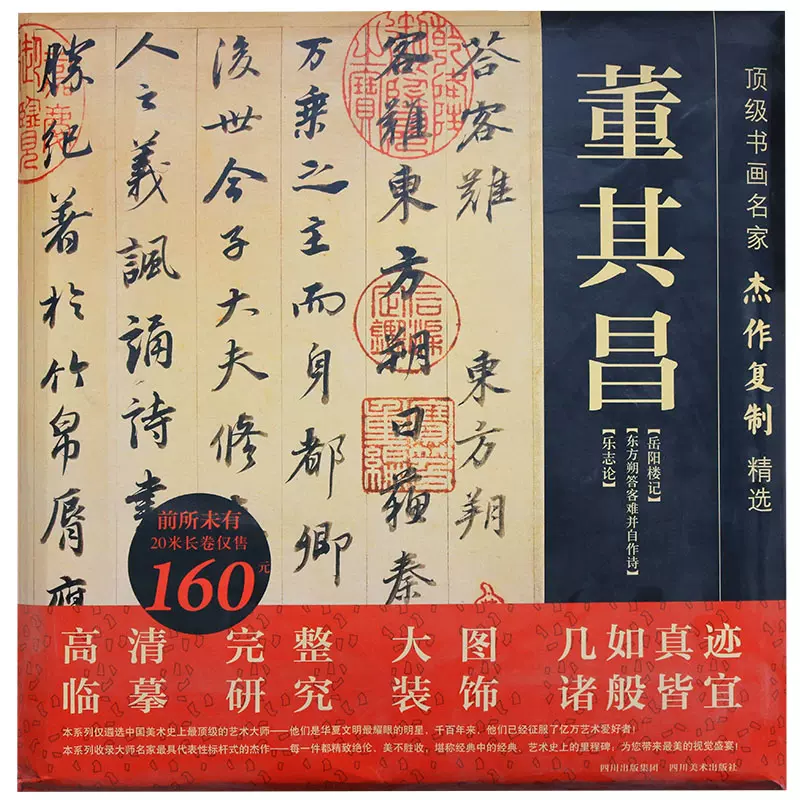 顶级书画名家 杰作复制 精选
董其昌
【岳阳楼记】
【东方朔答客难并自作诗】
【乐志论】
荅客難 東方朔
客難東方朔曰蘇秦
万乘之主而身都卿
後世今子大夫修
人之義諷誦詩書
勝紀著於竹帛脣腐
乾隆御覽之寶
石渠定鑑
寶笈重編
前所未有
20米长卷仅售
160元
高清 完整 大图 几如真迹
临摹 研究 装饰 诸般皆宜
本系列仅遴选中国美术史上最顶级的艺术大师——他们是华夏文明最耀眼的明星，千百年来，他们已经征服了亿万艺术爱好者！
本系列收录大师名家最具代表性标杆式的杰作——每一件都精致绝伦、美不胜收，堪称经典中的经典，艺术史上的里程碑，为您带来最美的视觉盛宴！
四川出版集团 四川美术出版社